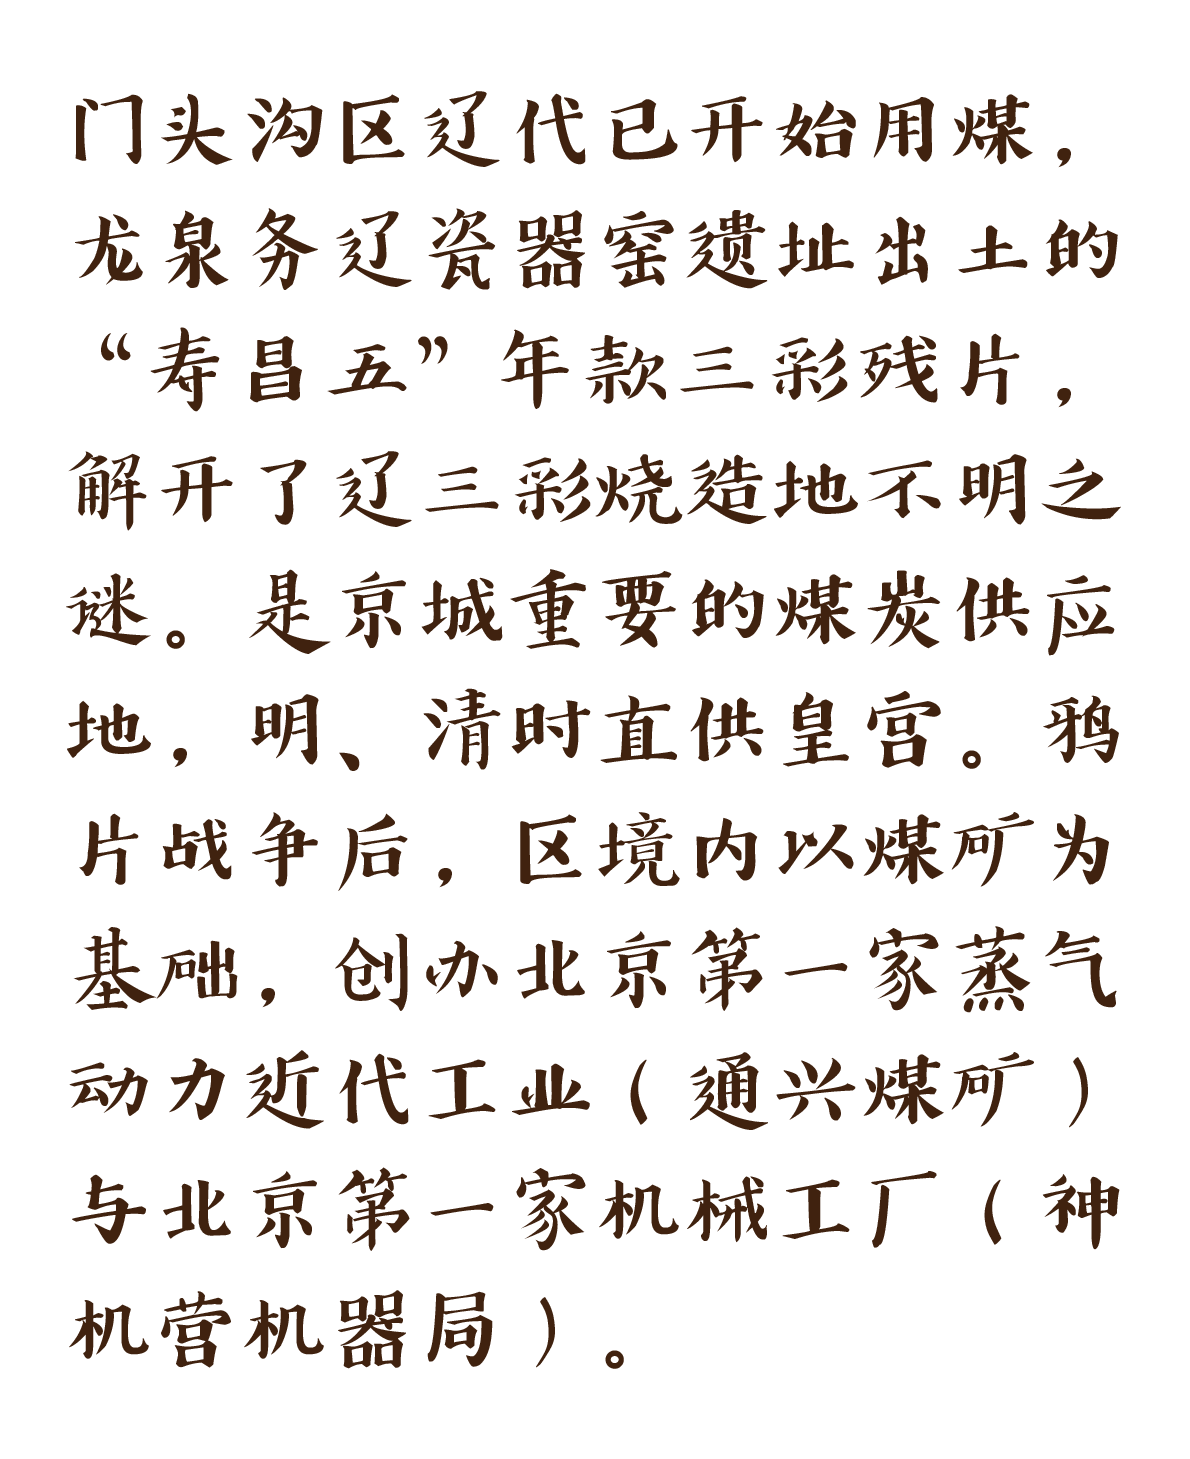 门头沟区辽代已开始用煤，
龙泉务辽瓷器窑遗址出土的
“寿昌五”年款三彩残片，
解开了辽三彩烧造地不明之
谜。是京城重要的煤炭供应
地，明、清时直供皇宫。鸦
片战争后，区境内以煤矿为
基础，创办北京第一家蒸气
动力近代工业（通兴煤矿）
与北京第一家机械工厂（神
机营机器局）。